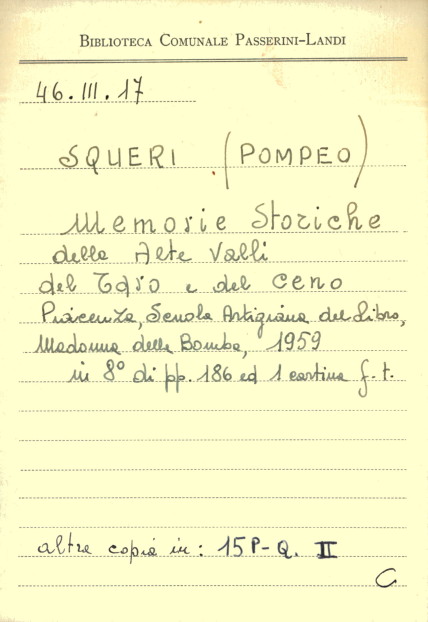 BIBLIOTECA COMUNALE PASSERINI-LANDI
46.III.17
SQUERI (POMPEO)
Memorie Storiche
delle Alte Valli
del Taro e del Ceno
Piacenza, Scuola Artigiana del Libro,
Madonna della Bomba, 1959
in 8° di pp. 186 ed 1 cartina f.t.
altre copia in: 15 P-Q. II
C